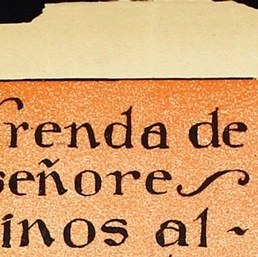 renda de
señore
inos al-